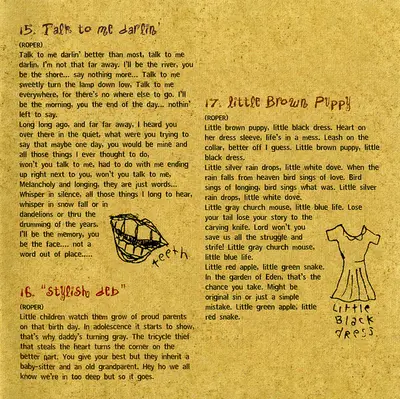 15. Talk to me darlin'
(ROPER)
Talk to me darlin' better than most, talk to me
darlin, I'm not that far away. I'll be the river, you
be the shore... say nothing more... Talk to me
sweetly turn the lamp down low. Talk to me
everywhere, for there's no where else to go. I'll
be the morning, you the end of the day... nothin'
left to say.
Long long ago, and far far away, I heard you
over there in the quiet, what were you trying to
say that maybe one day, you would be mine and
all those things I ever thought to do,
won't you talk to me, had to do with me ending
up right next to you, won't you talk to me.
Melancholy and longing, they are just words...
Whisper in silence, all those things I long to hear,
whisper in snow fall or in
dandelions or thru the
drumming of the years.
I'll be the memory, you
be the face.... not a
word out of place.....
teeth
16. "stylish deb"
(ROPER)
Little children watch them grow of proud parents
on that birth day. In adolescence it starts to show,
that's why daddy's turning gray. The tricycle thief
that steals the heart turns the corner on the
better part. You give your best but they inherit a
baby-sitter and an old grandparent. Hey ho we all
know we're in too deep but so it goes.
17. little Brown Puppy
(ROPER)
Little brown puppy, little black dress. Heart on
her dress sleeve, life's in a mess. Leash on the
collar, better off I guess. Little brown puppy, little
black dress.
Little silver rain drops, little white dove. When the
rain falls from heaven bird sings of love. Bird
sings of longing, bird sings what was. Little silver
rain drops, little white dove.
Little gray church mouse, little blue life. Lose
your tail lose your story to the
carving knife. Lord won't you
save us all the struggle and
strife! Little gray church mouse,
little blue life.
Little red apple, little green snake.
In the garden of Eden, that's the
chance you take. Might be
original sin or just a simple
mistake. Little green apple, little
red snake.
Little
Black
dress